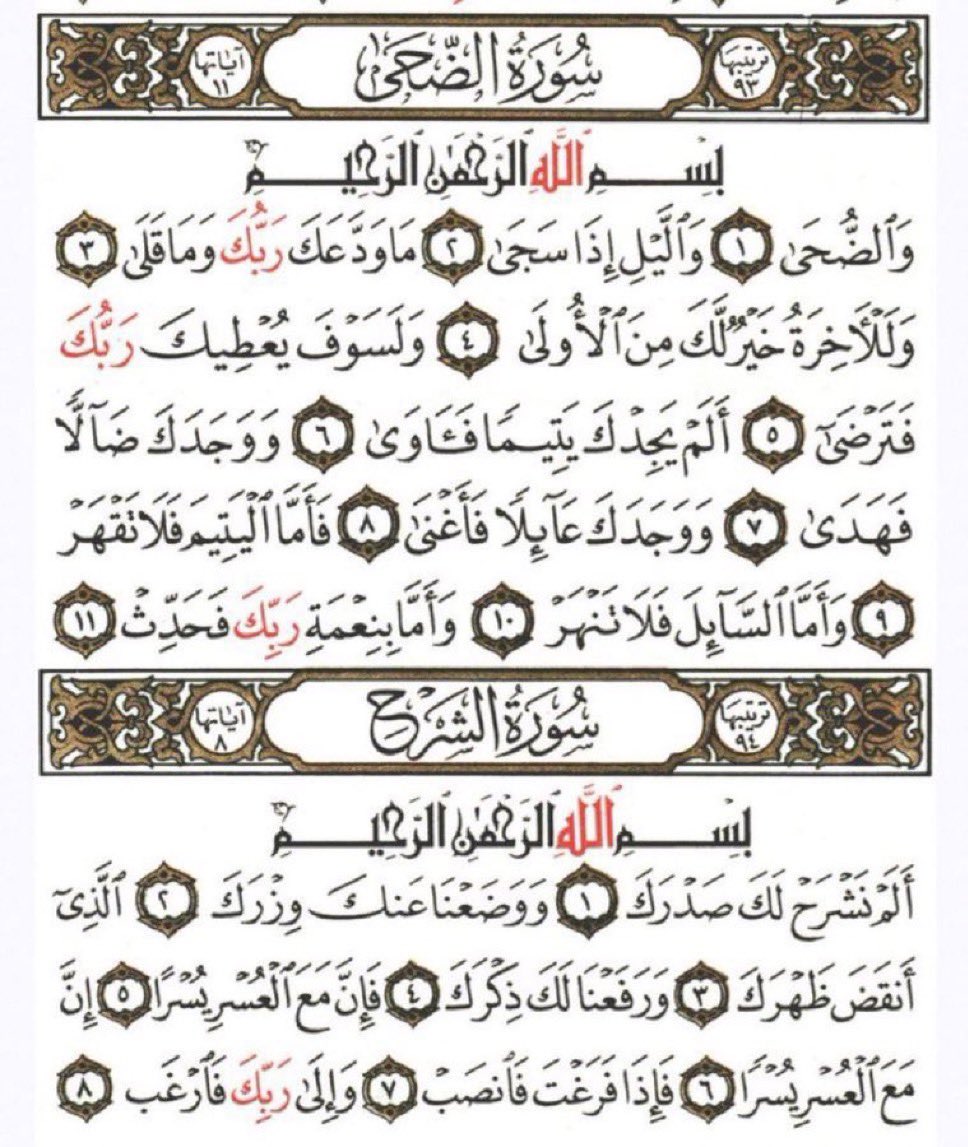 ترتيبها ٩٣ سُورَةُ الضُّحَىٰ آيَاتها ١١
بِسْمِ ٱللَّهِ ٱلرَّحْمَٰنِ ٱلرَّحِيمِ
وَٱلضُّحَىٰ ١ وَٱلَّيْلِ إِذَا سَجَىٰ ٢ مَا وَدَّعَكَ رَبُّكَ وَمَا قَلَىٰ ٣
وَلَلْأَخِرَةُ خَيْرٌ لَّكَ مِنَ ٱلْأُولَىٰ ٤ وَلَسَوْفَ يُعْطِيكَ رَبُّكَ
فَتَرْضَىٰٓ ٥ أَلَمْ يَجِدْكَ يَتِيمًا فَـَٔاوَىٰ ٦ وَوَجَدَكَ ضَآلًّا
فَهَدَىٰ ٧ وَوَجَدَكَ عَآئِلًا فَأَغْنَىٰ ٨ فَأَمَّا ٱلْيَتِيمَ فَلَا تَقْهَرْ
٩ وَأَمَّا ٱلسَّآئِلَ فَلَا تَنْهَرْ ١٠ وَأَمَّا بِنِعْمَةِ رَبِّكَ فَحَدِّثْ ١١
ترتيبها ٩٤ سُورَةُ الشَّرْحِ آيَاتها ٨
بِسْمِ ٱللَّهِ ٱلرَّحْمَٰنِ ٱلرَّحِيمِ
أَلَمْ نَشْرَحْ لَكَ صَدْرَكَ ١ وَوَضَعْنَا عَنكَ وِزْرَكَ ٢ ٱلَّذِىٓ
أَنقَضَ ظَهْرَكَ ٣ وَرَفَعْنَا لَكَ ذِكْرَكَ ٤ فَإِنَّ مَعَ ٱلْعُسْرِ يُسْرًا ٥ إِنَّ
مَعَ ٱلْعُسْرِ يُسْرًا ٦ فَإِذَا فَرَغْتَ فَٱنصَبْ ٧ وَإِلَىٰ رَبِّكَ فَٱرْغَب ٨